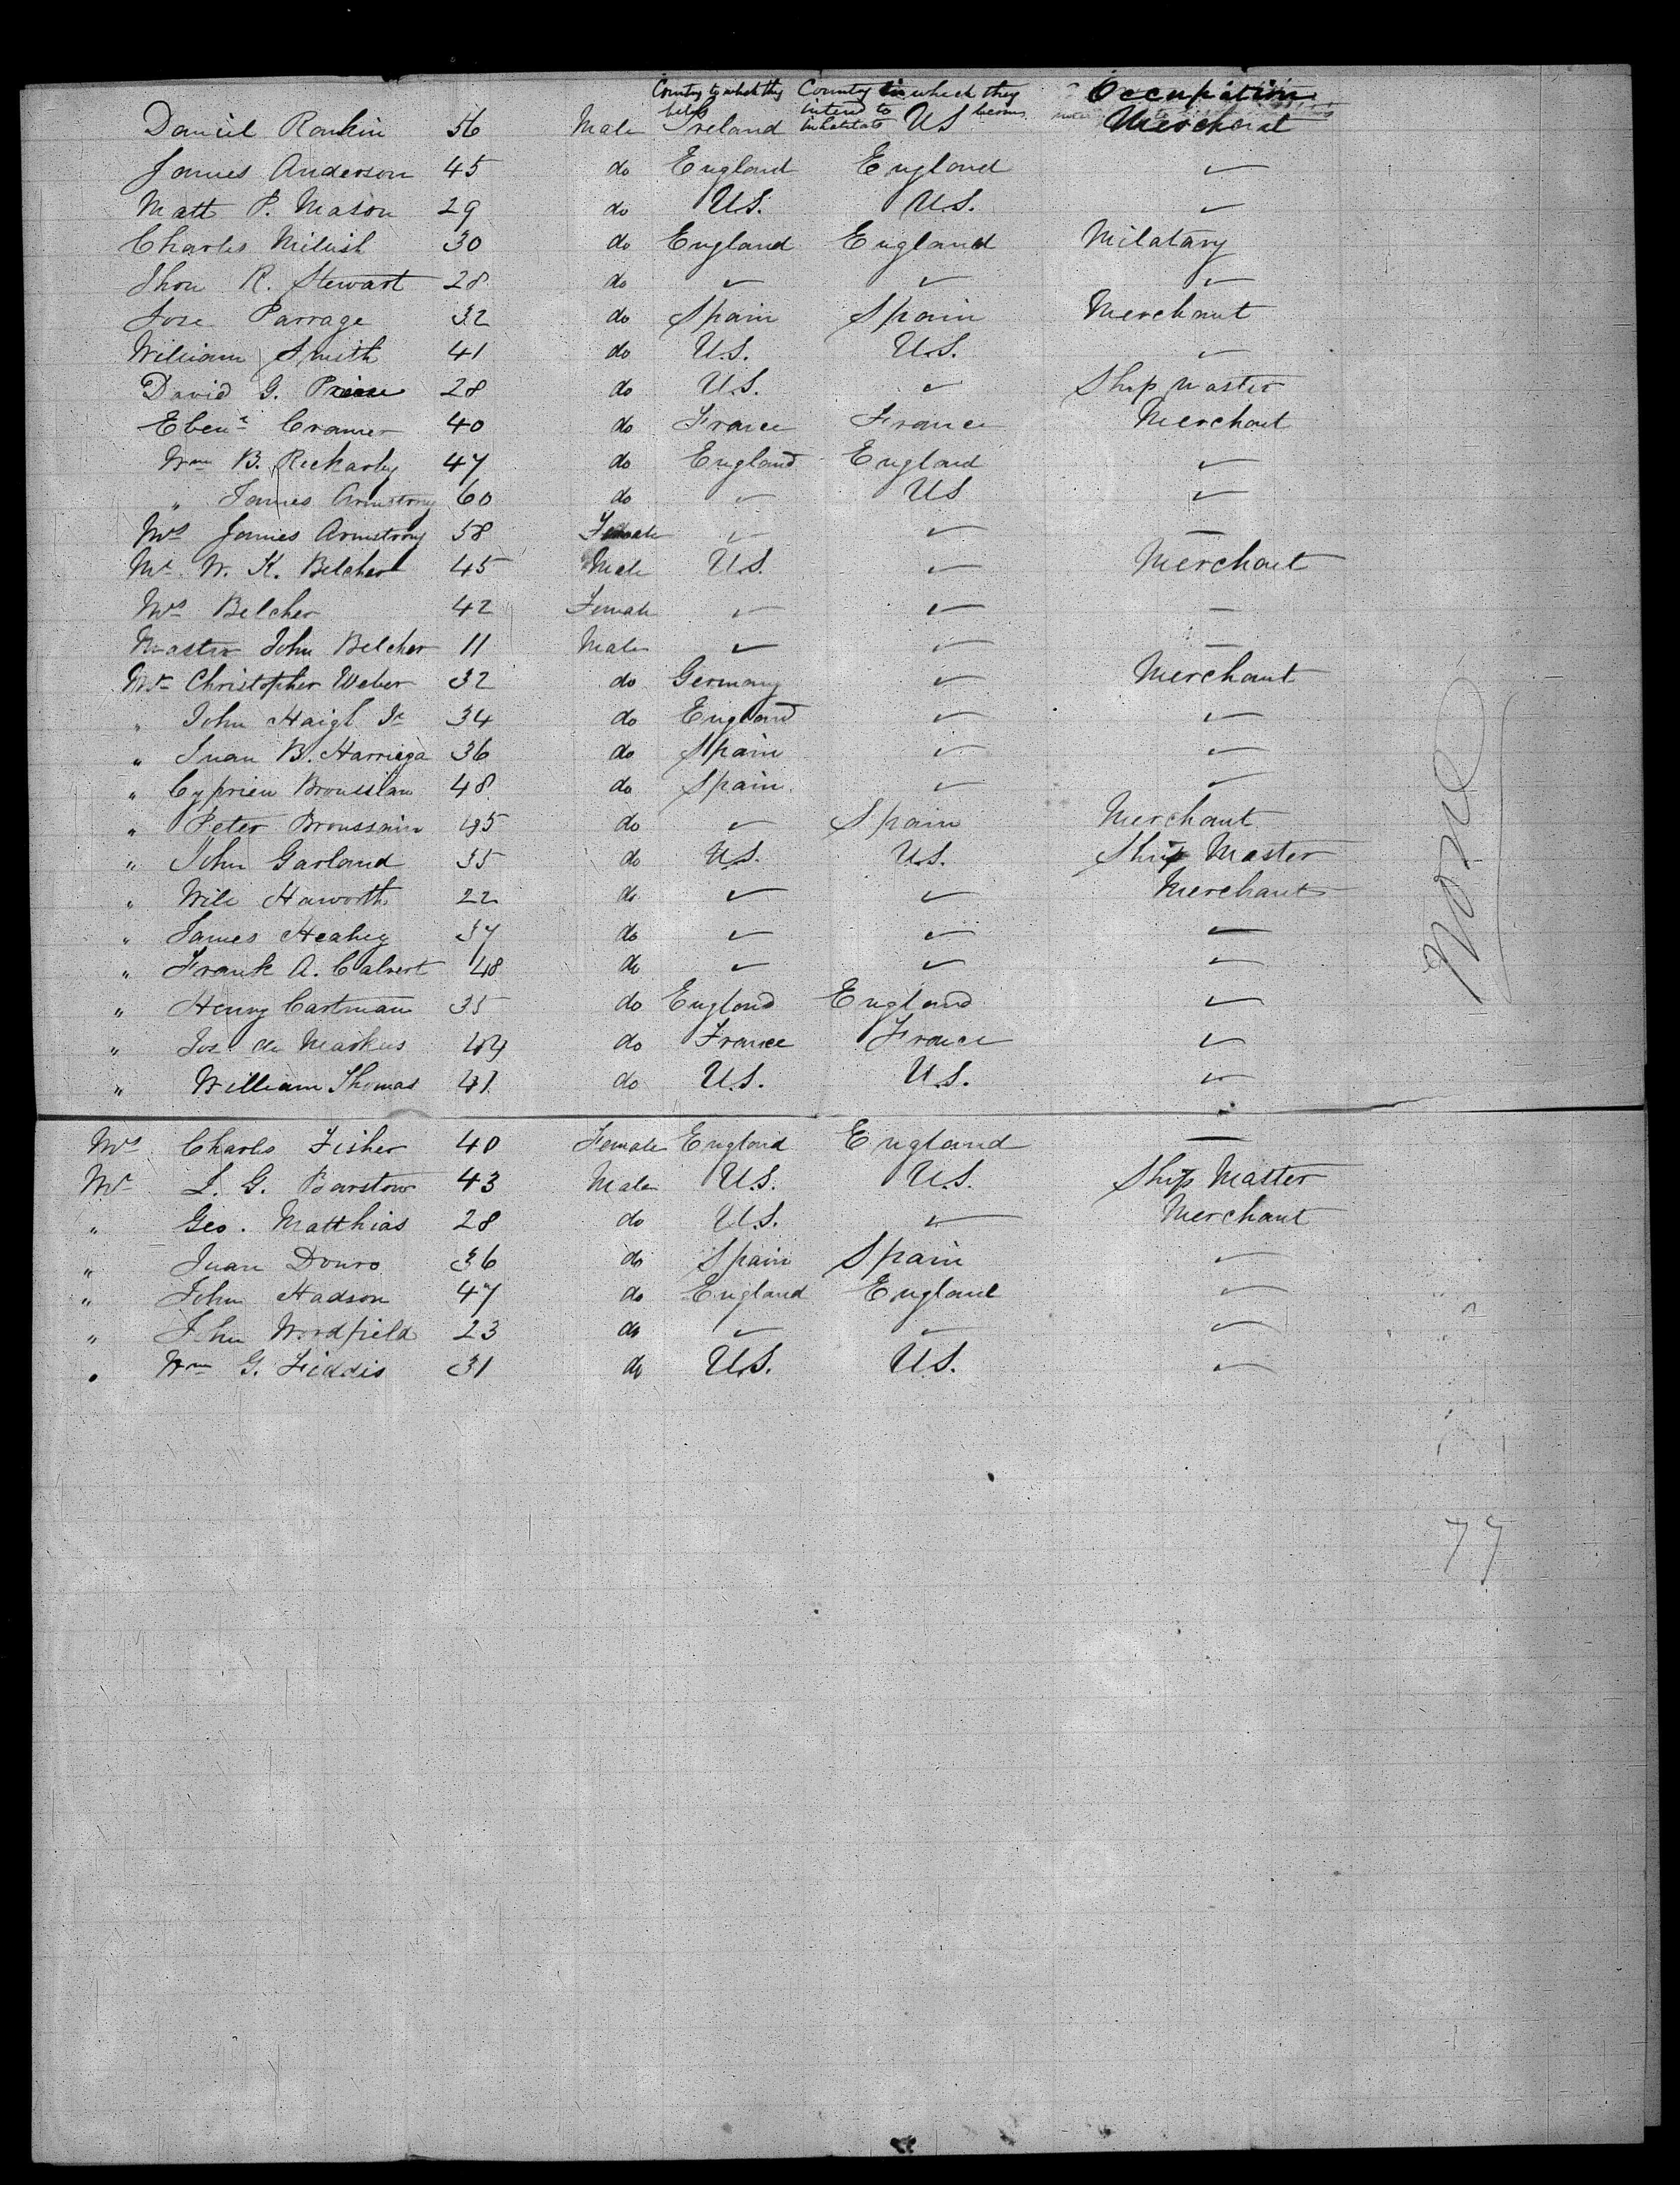 Country to which they belg Country in which they intend to become inhabitants Occupation
Daniel Rankin 56 Male Ireland US Merchant
James Anderson 45 do England England ✓
Matt P. Mason 29 do U.S. U.S. ✓
Charles 30 do England England Milatary
Thon R. Stewart 28 do ✓ ✓ ✓
Jose Parrage 32 do Spain Spain Merchant
William Smith 41 do U.S. U.S. ✓
David G. 28 do U.S. ✓ Ship master
Ebenr Cramer 40 do France France Merchant
Wm B. Rickarby 47 do England England ✓
" James Armstrong 60 do ✓ US ✓
Mrs James Armstrong 58 Female ✓ ✓ —
Mr W. K. Belcher 45 Male U.S. ✓ Merchant
Mrs Belcher 42 Female ✓ ✓ —
Master John Belcher 11 Male ✓ ✓ —
Mr Christopher Weber 32 do Germany ✓ Merchant
" John Haigh Jr 34 do England ✓ ✓
" Juan B. Harriaga 36 do Spain ✓ ✓
" Cyprien 48 do Spain. ✓ ✓
" Peter Broussain 45 do ✓ Spain Merchant
" John Garland 35 do U.S. U.S. Ship Master
" Will Haworth 22 do ✓ ✓ Merchant
" James Healey 37 do ✓ ✓ ✓
" Frank A. Calvert 48 do ✓ ✓ ✓
" Henry Cartman 35 do England England ✓
" Jos. de Markus 44 do France France ✓
" William Thomas 41 do U.S. U.S. ✓
Mrs Charles Fisher 40 Female England England —
Mr L. G. Barstow 43 Male U.S. U.S. Ship Master
" Geo. Matthias 28 do U.S. ✓ Merchant
" Juan Douro 36 do Spain Spain ✓
" John Hadson 47 do England England ✓
" John Woodfield 23 do ✓ ✓ ✓
" Wm G. Fiddis 31 do U.S. U.S. ✓
None
77